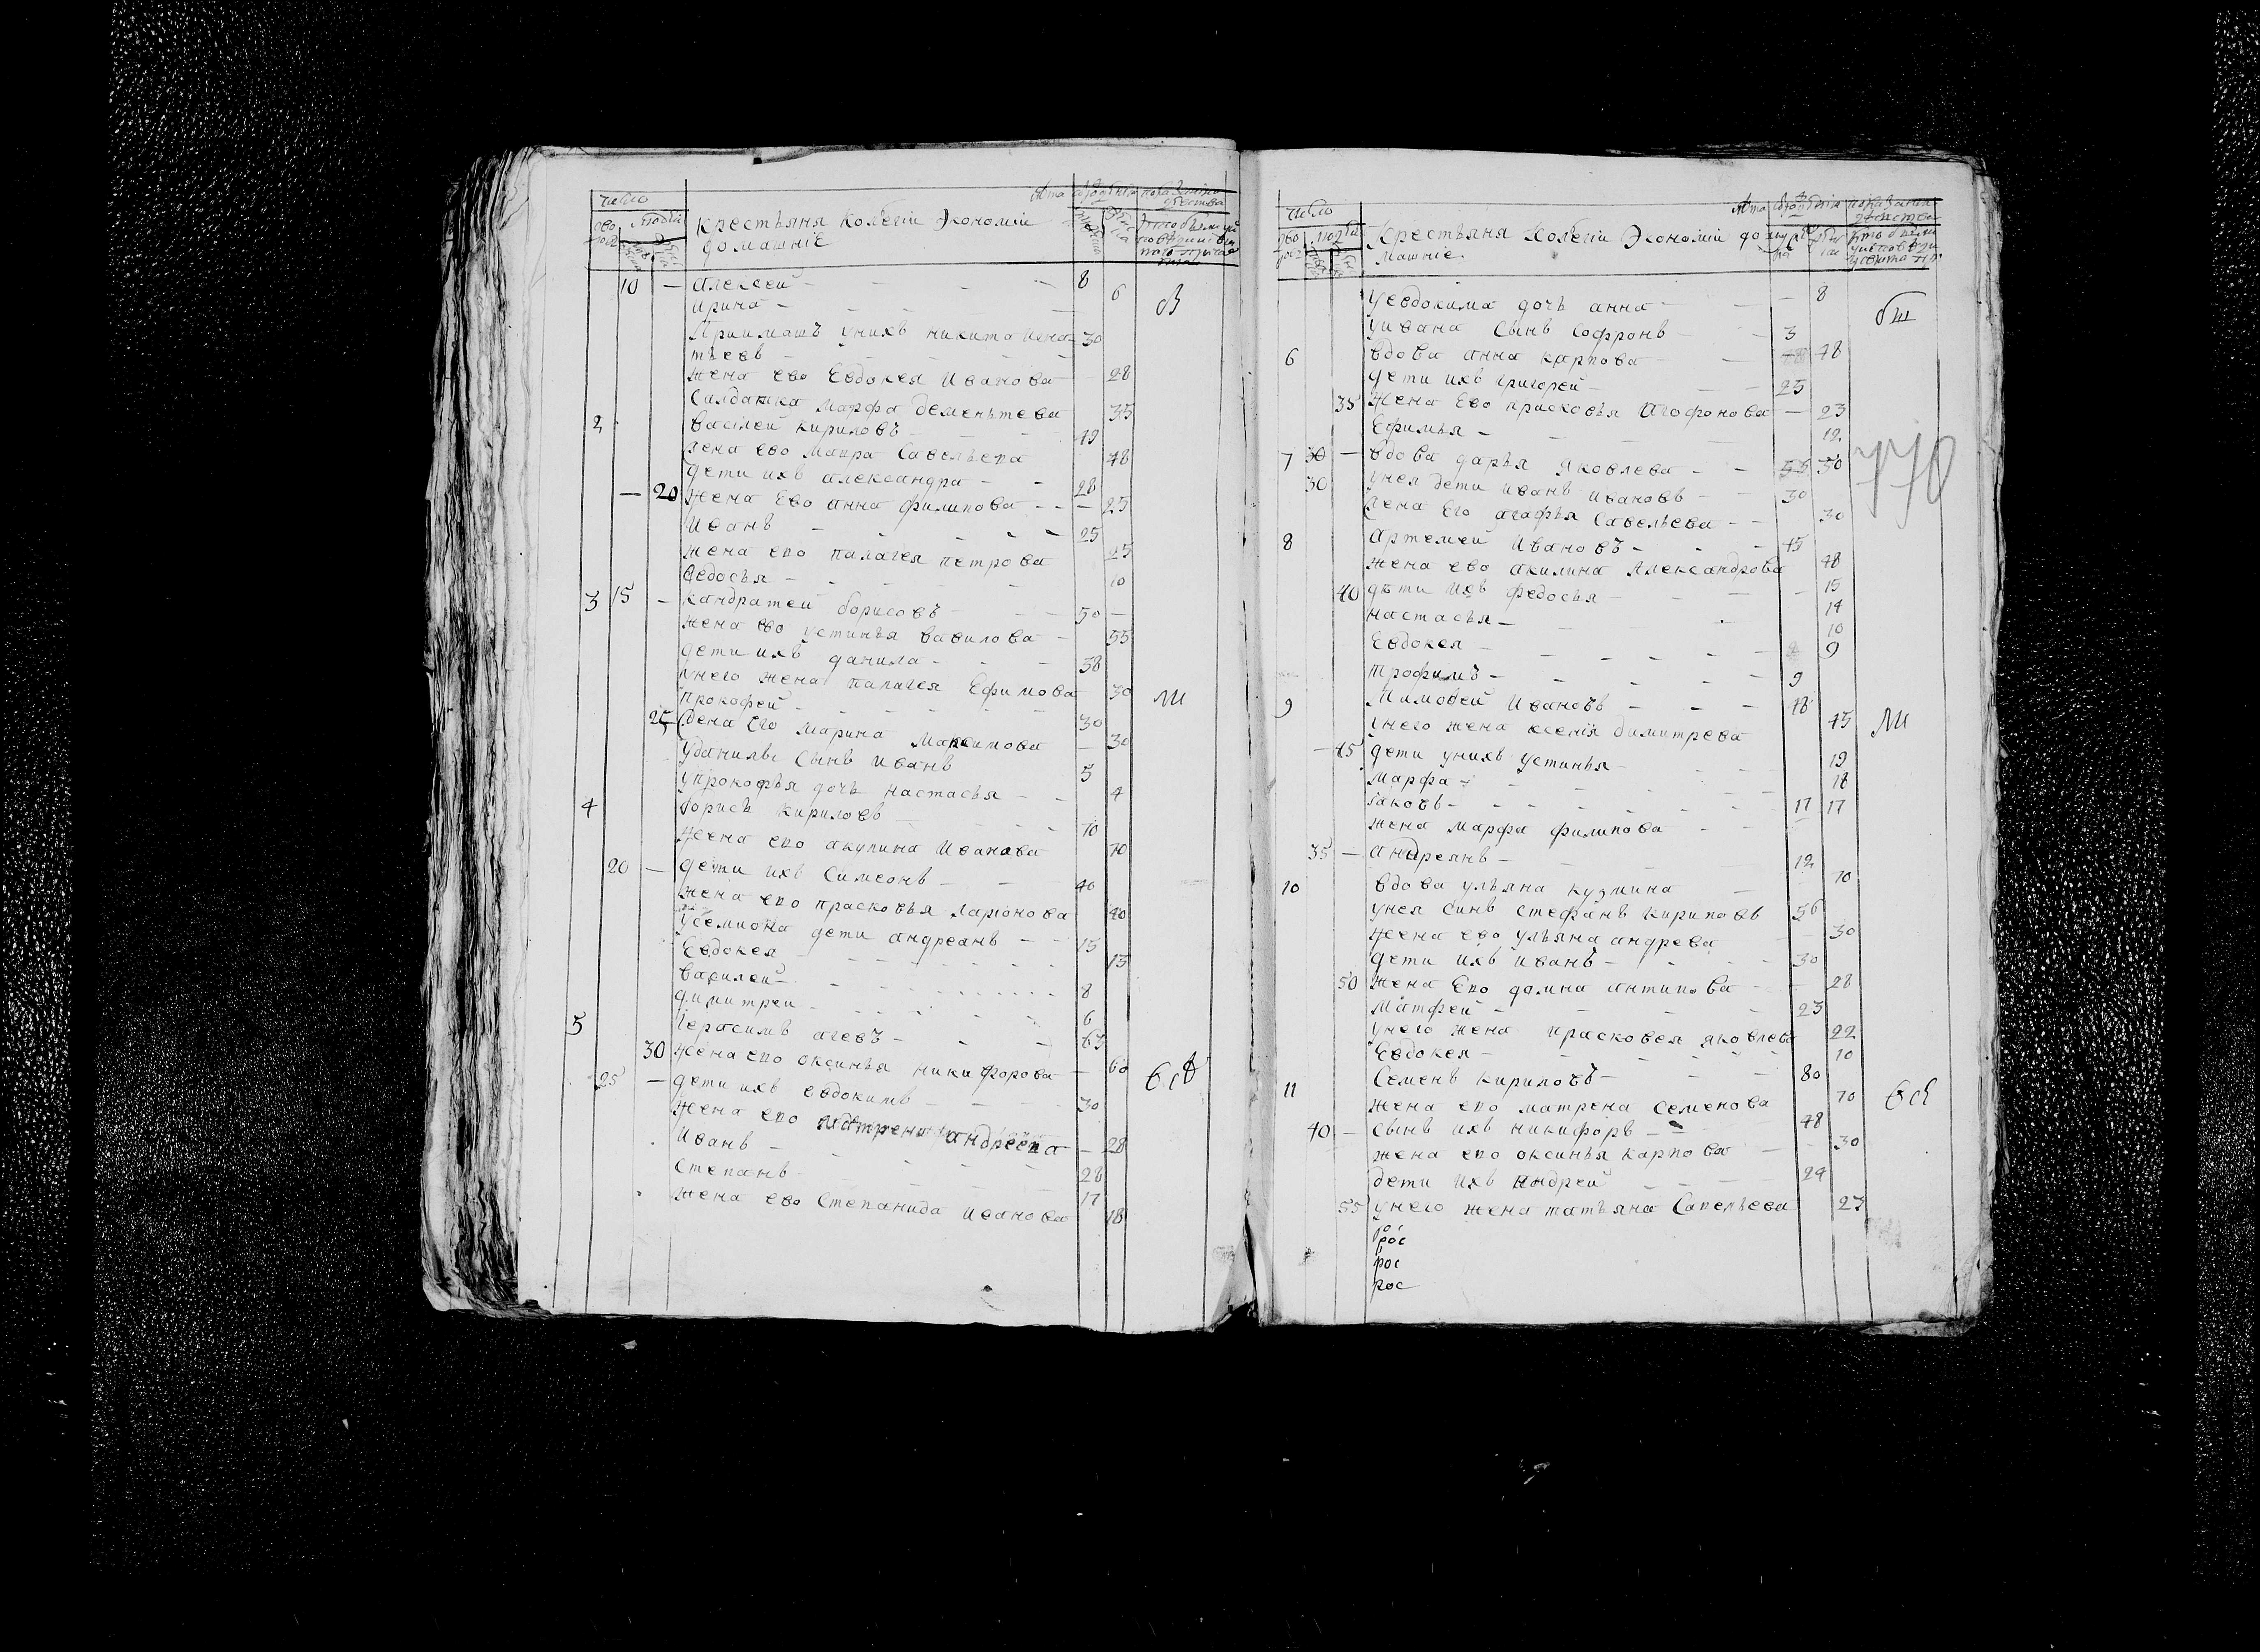 число
лѣта
мужеска
крестьяня Колегіи Экономіи
домашніе
10 — алексей — 8
ирина — 6
Приимашъ унихъ никита игна 30
тьевъ —
жена ево Евдокея Иванова 28
Салдатка марфа дементьева 35
2 василей кириловъ 49
жена ево мавра Савельева 48
дети ихъ александра — 28
— 20 жена Ево анна филипова — — 25
Иванъ — 25
жена ево палагея петрова 25
Федосья — 10
3 15 — кандратей борисовъ — 50 —
жена ево устинья вавилова — 55
дети ихъ данила — 38
унего жена палагея Ефимова 30
прокофей — 30
25 жена Его марина Максимова — 30
уданилы Сынъ иванъ 5
упрокофья дочь настасья — 4
4 борисъ кириловъ — 70
жена ево акулина Иванова 70
20 — дети ихъ Симеонъ — 40
жена ево прасковья ларионова 40
усемиона дети андреянъ — 15
Евдокея — 13
василей — 8
димитреи — 6
5 герасимъ агеевъ — 63
30 жена ево оксинья никифорова — 60
25 — дети ихъ евдокимъ — 30
жена ево матрена андреева — 28
Иванъ — 28
степанъ — 17
жена ево Степанида иванова 18
число
лѣта
Крестьяня Колегіи Экономіи до
машніе
уевдокима дочь анна — 8
уивана Сынъ Софронъ — 3
6 вдова анна карпова — 48
дети ихъ григорей — 25
35 жена Ево прасковья Агофонова — 23
Ефимья — 12
7 30 — вдова дарья яковлева — 55 50
30 унея дети иванъ ивановъ — 30
жена Его агафья Савельева — 30
8 артемей ивановъ — 45
жена ево акилина Александрова 48
40 дети ихъ федосья — 15
настасья — 14
10
Евдокея — 9
трофимъ — 9
9 Тимофей Ивановъ — 48
унего жена ксенія димитрева 45
— 45 дети унихъ устинья — 19
марфа — 18
Іаковъ — 17 17
жена марфа филипова —
35 — андреянъ — 12
10 вдова ульяна кузмина — 70
унея синъ стефанъ кириловъ 56
жена ево ульяна андрева 30
дети ихъ иванъ — 30
50 жена Ево домна антипова — 28
Матфей — 23
унего жена прасковея яковлева 22
Евдокея — 10
11 Семенъ кириловъ — 80
жена ево матрена семенова 70
40 — сынъ ихъ никифоръ — 48
жена ево оксинья карпова — 30
дети ихъ андрей — 29
55 унего жена татьяна Савельева 23
рос
рос
рос
770